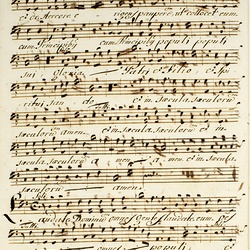 de stercore erigens pauperem ut collocet eum
cum Principibus cum Principibus populi populi
sui Gloria Patri et Filio et Spi
ritui San cto et in saecula saeculorum
saeculorum amen. et in saecula saeculorum et in
saecula saeculorum a men a men et in saecula
saeculorum amen.
Laudate Dominum omnes Gentes laudate eum
omnes populi